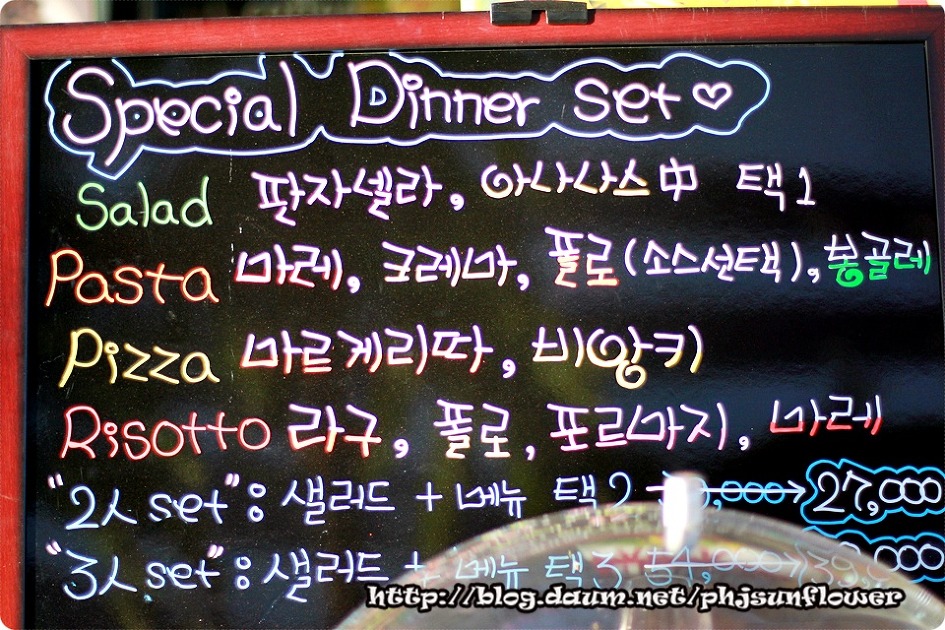 Special Dinner Set ♡
Salad 판자셀라, 아사사스 中 택1
Pasta 마레, 크레마, 폴로(소스선택), 봉골레
Pizza 마르게리따, 비앙키
Risotto 라구, 폴로, 포르마지, 마레
"2人 set": 샐러드 + 메뉴 택2 → 27,000
"3人 set": 샐러드 + 메뉴 택3 54,000→39,000
http://blog.daum.net/phjsunflower